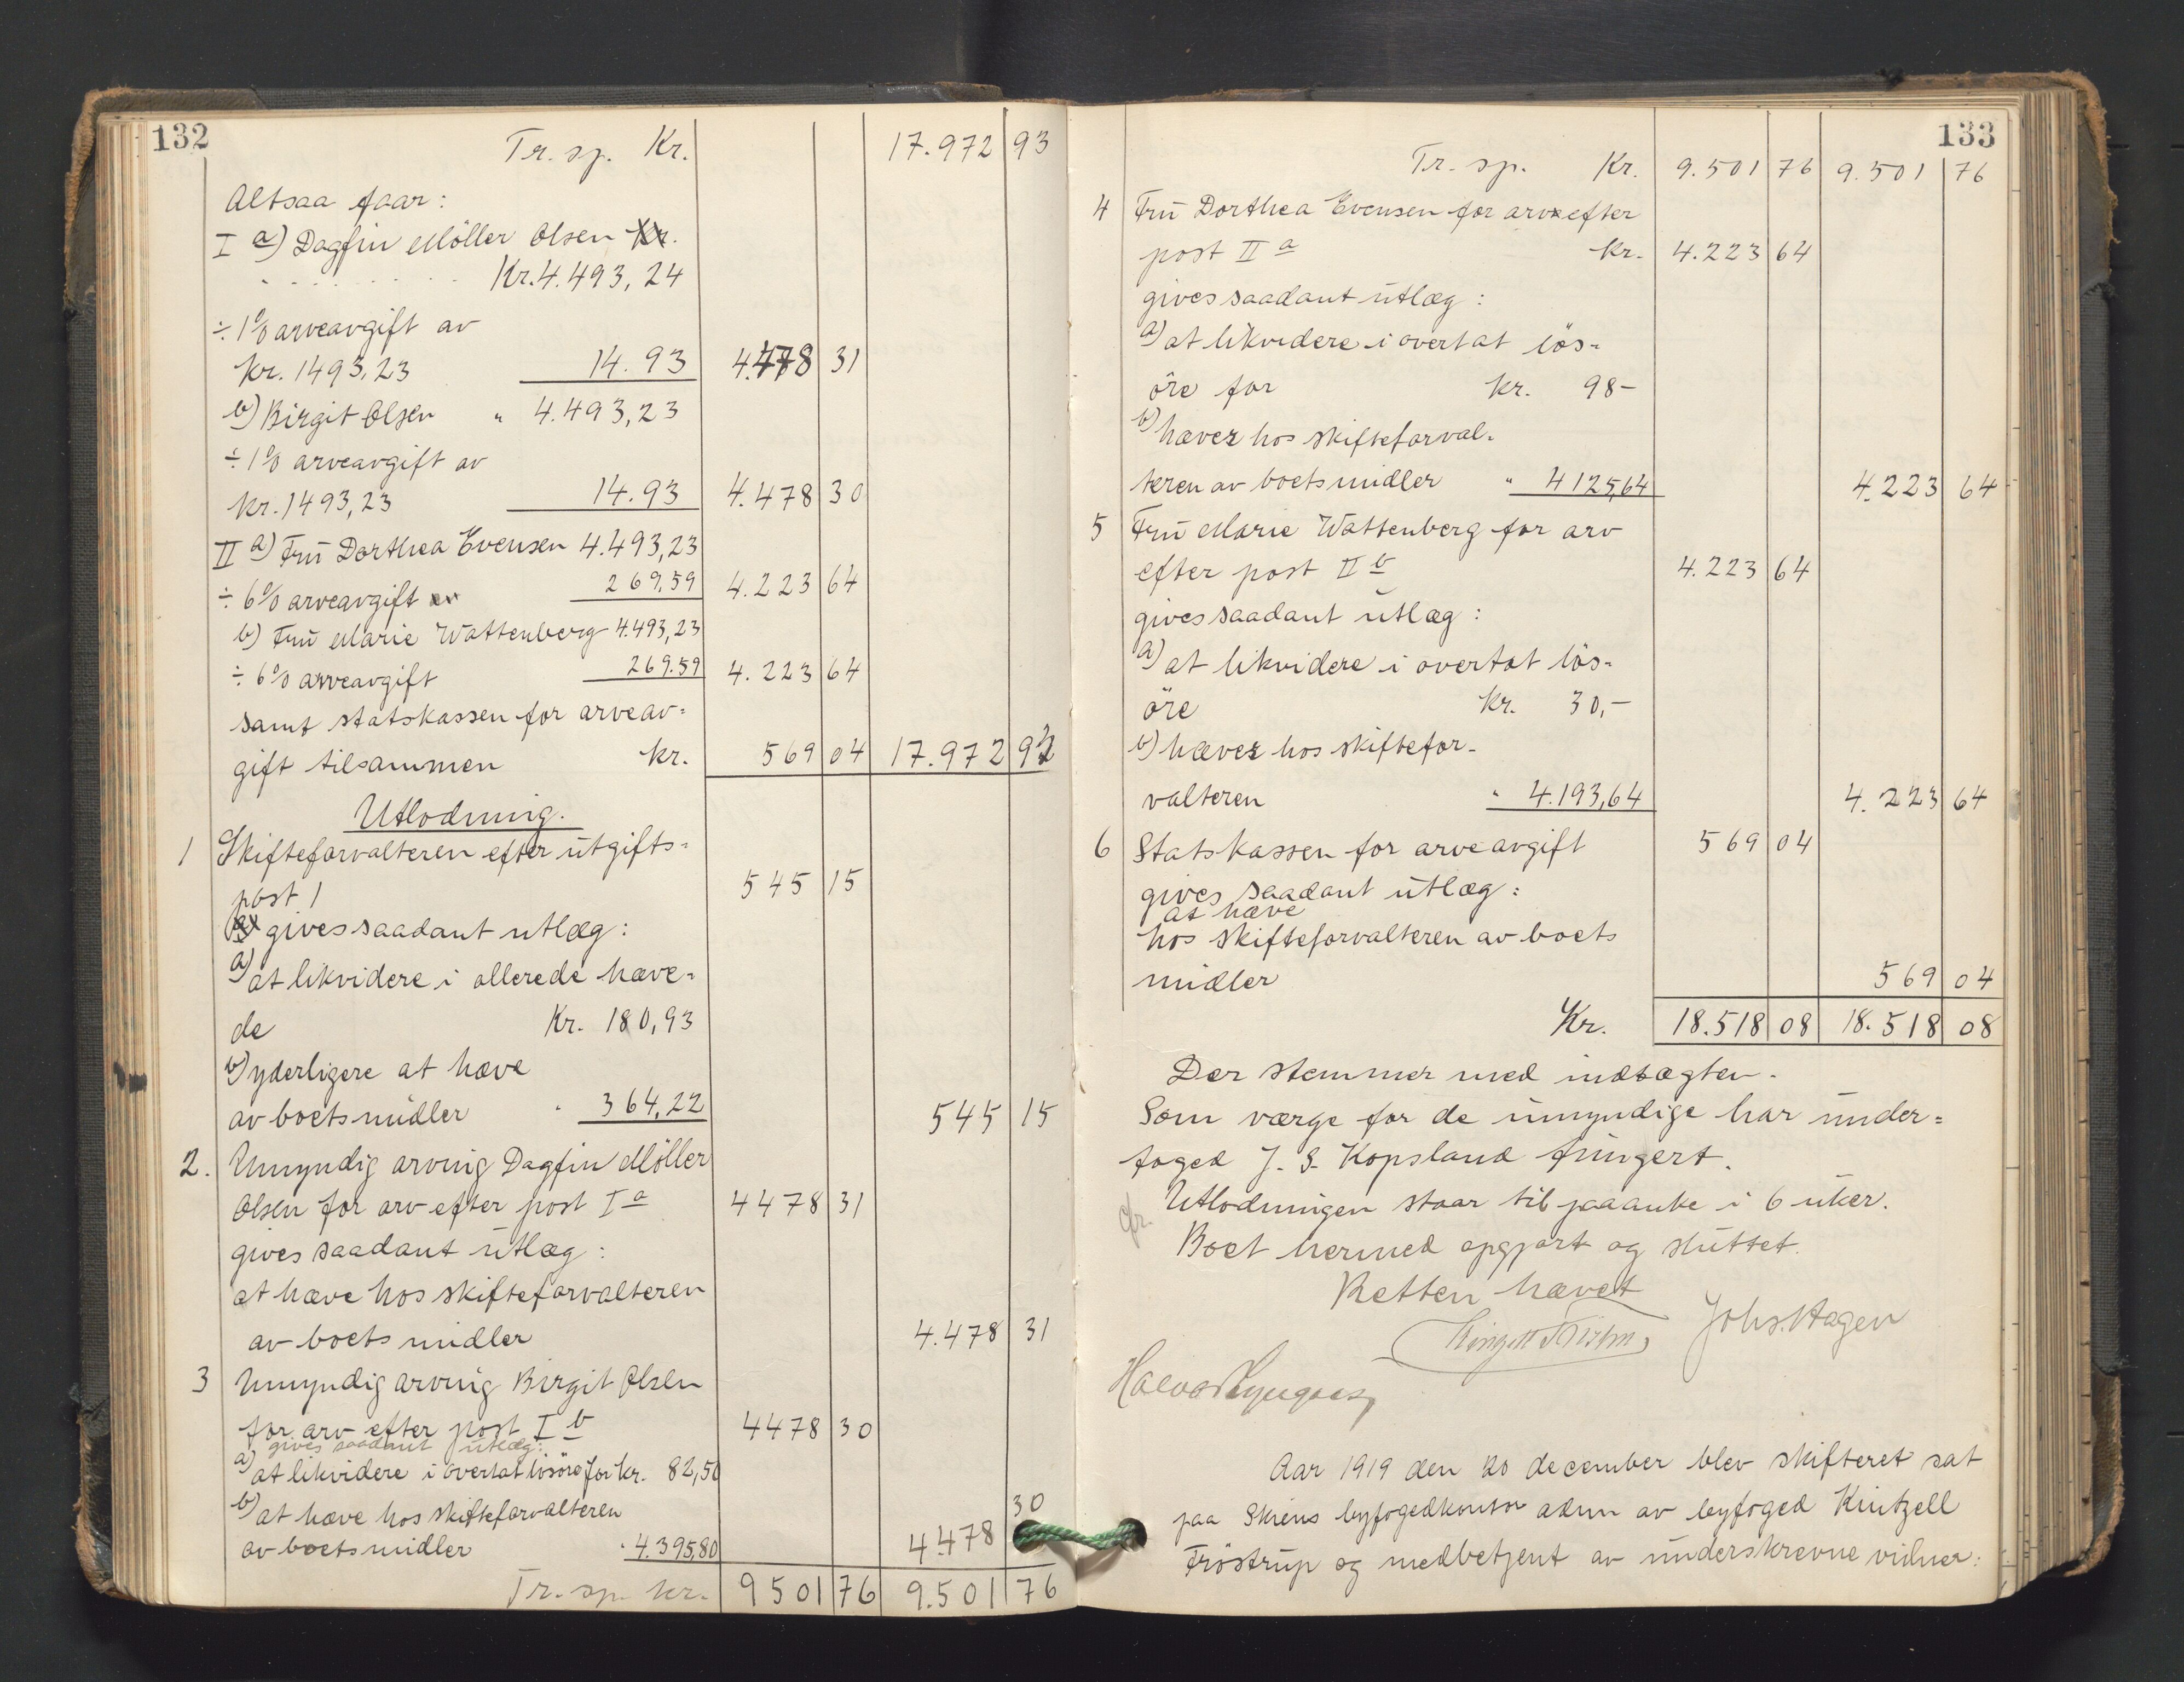 132
Tr. sp. Kr. 17.972 93
Altsaa faar:
I a) Dagfin Möller Olsen
Kr. 4.493,24
÷ 1% arveavgift av
kr. 1493,23 14.93 4.478 31
b) Birgit Olsen " 4.493,23
÷ 1% arveavgift av
kr. 1493,23 14.93 4.478 30
II a) Fru Dorthea Evensen 4.493,23
÷ 6% arveavgift 269,59 4.223 64
b) Fru Marie Wattenberg 4.493,23
÷ 6% arveavgift 269.59 4.223 64
samt statskassen for arveav=
gift tilsammen kr. 569 04 17.972 93
Utlodning.
1 Skifteforvalteren efter utgifts=
post 1 545 15
gives saadant utlæg:
a) at likvidere i allerede hæve=
de Kr. 180,93
b) yderligere at hæve
av boets midler " 364,22 545 15
2. Umyndig arving Dagfin Möller
Olsen for arv efter post I a 4478 31
gives saadant utlæg:
at hæve hos skifteforvalteren
av boets midler 4.478 31
3 Umyndig arving Birgit Olsen
for arv efter post I b 4478 30
gives saadant utlæg:
a) at likvidere i overtat lösöre for kr. 82,50
b) at hæve hos skifteforvalteren
av boets midler " 4.395,80 4.478 30
Tr. sp. kr. 9501 76 9.501 76
133
Tr. sp. Kr. 9.501 76 9.501 76
4 Fru Dorthea Evensen for arv efter
post II a kr. 4.223 64
gives saadant utlæg:
a) at likvidere i overtat lös=
öre for kr. 98-
b) hæves hos skifteforval=
teren av boets midler " 4125,64 4.223 64
5 Fru Marie Wattenberg for arv
efter post II b 4.223 64
gives saadant utlæg:
a) at likvidere i overtat lös=
öre kr. 30,-
b) hæves hos skiftefor-
valteren " 4.193,64 4.223 64
6 Statskassen for arveavgift 569 04
gives saadant utlæg:
at hæve
hos skifteforvalteren av boets
midler 569 04
Kr. 18.518 08 18.518 08
Der stemmer med indtægten.
Som værge for de umyndige har under=
foged J. S. Kopsland fungert.
Utlodningen staar til paaanke i 6 uker.
Boet hermed opgjort og sluttet.
Retten hævet
Johs. Hagen
Aar 1919 den 20 december blev skifteret sat
paa Skiens byfogedkontor adm av byfoged Kintzell
Fröstrup og medbetjent av underskrevne vidner: